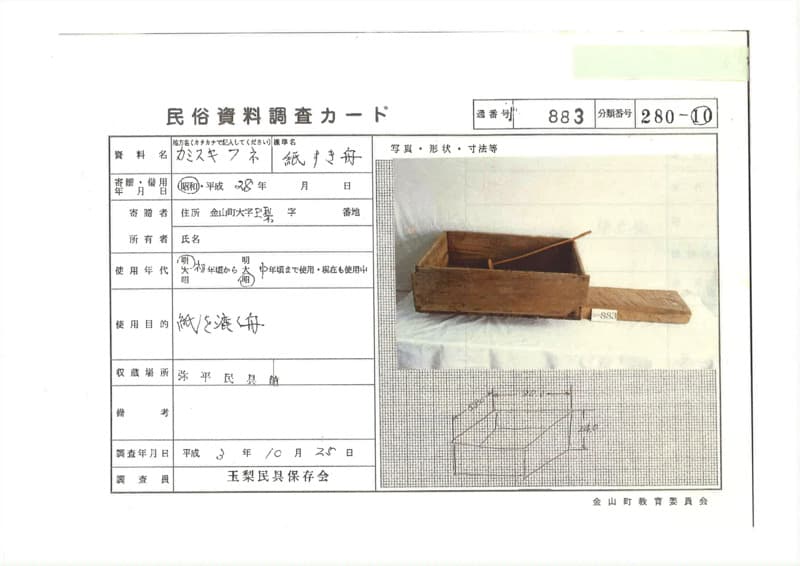 民俗資料調査カード
通番号 883 分類番号 280-⑩
資料名 地方名(カタカナで記入してください) カミスキフネ 標準名 紙すき舟
写真・形状・寸法等
寄贈・借用年月日 昭和・平成 28年 月 日
寄贈者 住所 金山町大字玉梨 字 番地
所有者 氏名
使用年代 明大昭 初年頃から 明大昭 中年頃まで使用・現在も使用中
883
使用目的 紙を漉く舟
収蔵場所 弥平民具館
備考
90.0
24.0
調査年月日 平成 3年 10月 25日
調査員 玉梨民具保存会
金山町教育委員会